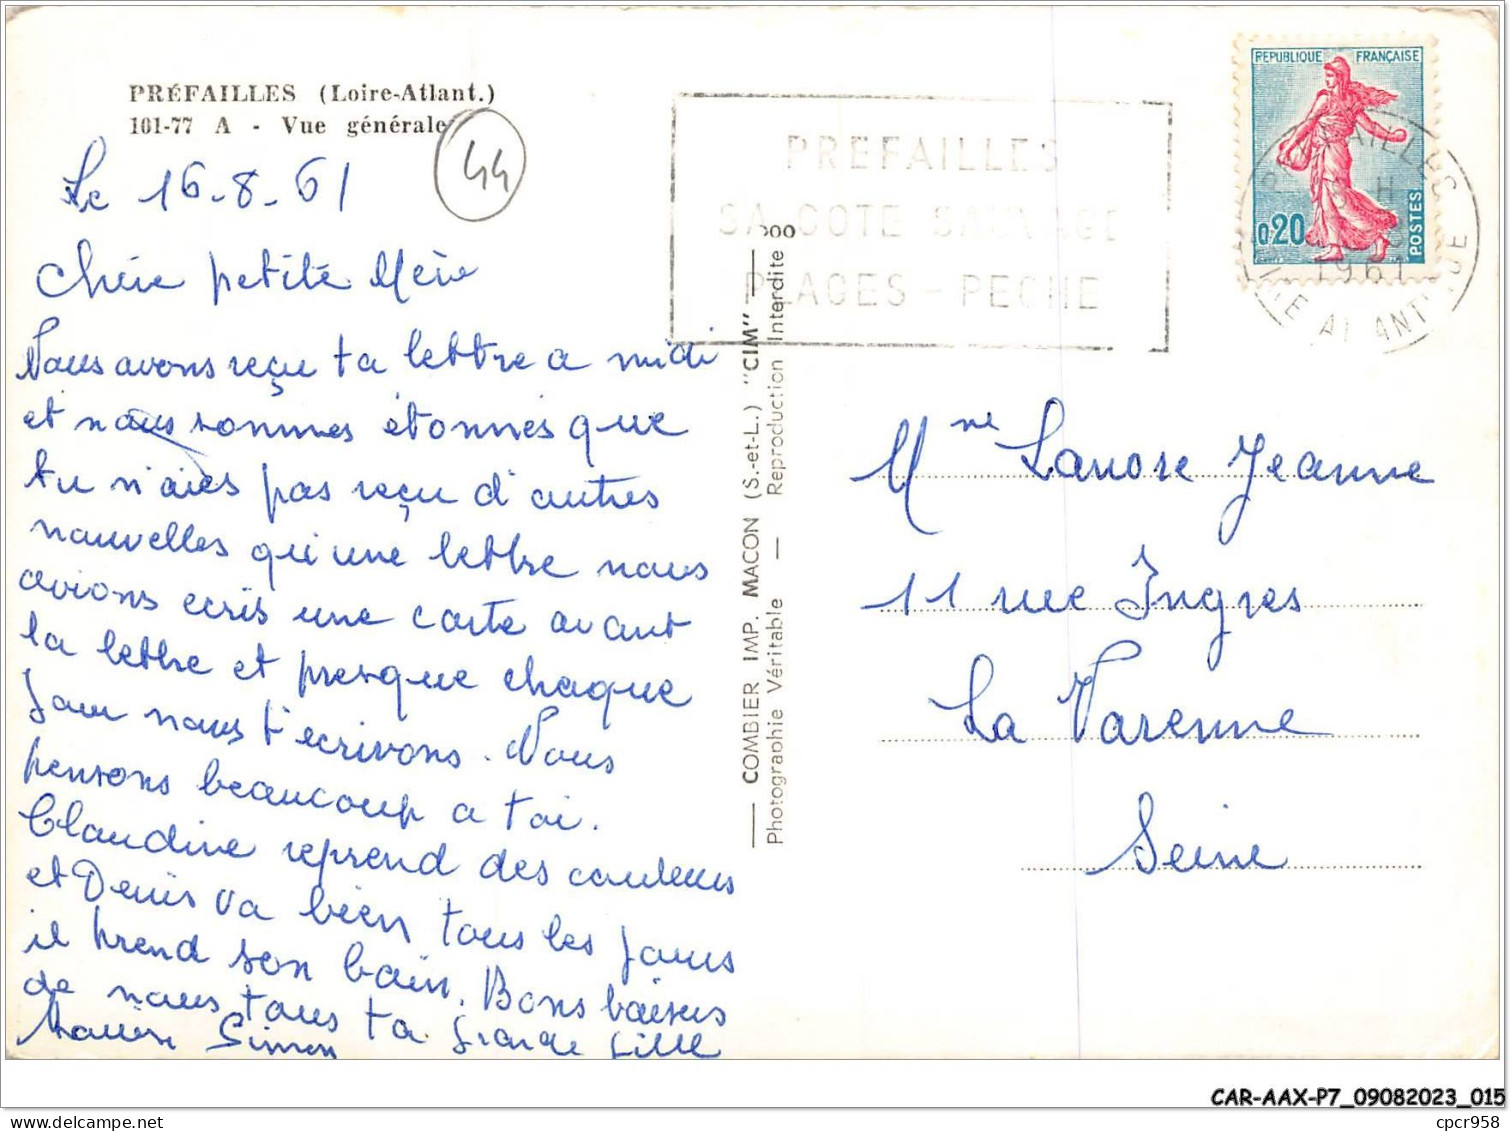 PRÉFAILLES (Loire-Atlant.)
101-77 A - Vue générale
44
Le 16-8-61
Chère petite Mère
Nous avons reçu ta lettre a midi
et nous sommes étonnés que
tu n'aies pas reçu d'autres
nouvelles qu'une lettre nous
avions ecris une carte avant
la lettre et presque chaque
jour nous t'ecrivons. Nous
pensons beaucoup a toi.
Claudine reprend des couleurs
et Denis va bien tous les jours
il prend son bain. Bons baisers
de nous tous ta grande fille
Simon
COMBIER IMP. MACON (S.-et-L.) "CIM"
Photographie Véritable — Reproduction Interdite
PREFAILLES
SA COTE SAUVAGE
PLAGES - PECHE
REPUBLIQUE FRANÇAISE
0,20
POSTES
1961
Mme Lanore Jeanne
11 rue Ingres
La Varenne
Seine
CAR-AAX-P7_09082023_015
cpcr958